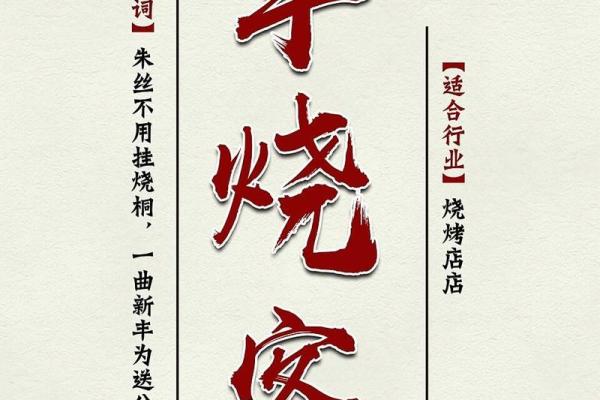 【适合行业】烧烤店店
烧
词】朱丝不用挂烧桐，一曲新丰为送